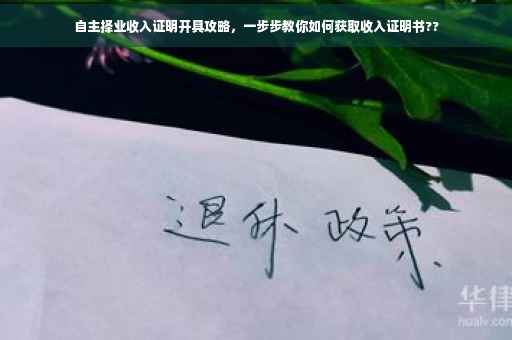 自主择业收入证明开具攻略，一步步教你如何获取收入证明书??
退休 政策
华律
hualv.com